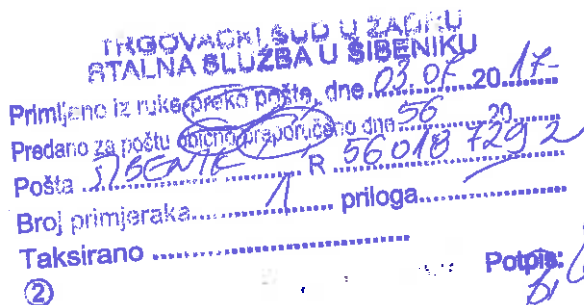 TRGOVAČKI SUD U ZADRU
STALNA SLUŽBA U ŠIBENIKU
Primljeno iz ruke-preko pošte, dne 03.07. 2017-
Predano za poštu obično preporučeno dne 56 20
Pošta R 56018 729 2
Broj primjeraka 1 priloga
Taksirano
Potpis:
2